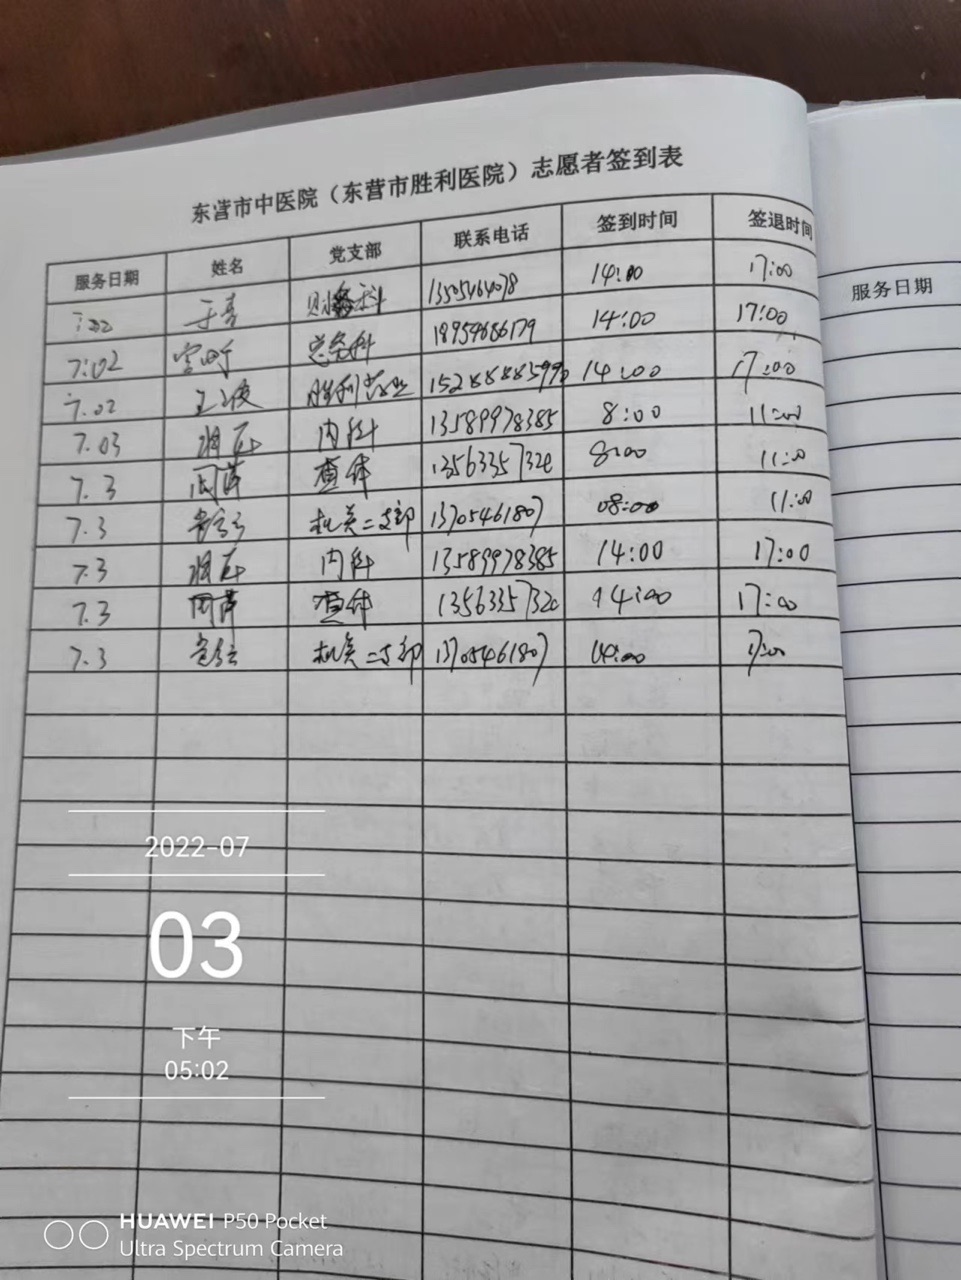 东营市中医院（东营市胜利医院）志愿者签到表
服务日期 姓名 党支部 联系电话 签到时间 签退时间
7:02 于青 财务科 13505464078 14:00 17:00
7:02 总务科 18954686179 14:00 17:00
7.02 胜利 14:00 17:00
7.03 内科 13589978385 8:00 11:00
7.3 周萍 查体 8:00 11:00
7.3 机关二支部 13705461807 08:00 11:00
7.3 内科 13589978385 14:00 17:00
7.3 周萍 查体 14:00 17:00
7.3 机关二支部 13705461807 14:00 17:00
服务日期
2022-07
03
下午
05:02
HUAWEI P50 Pocket
Ultra Spectrum Camera